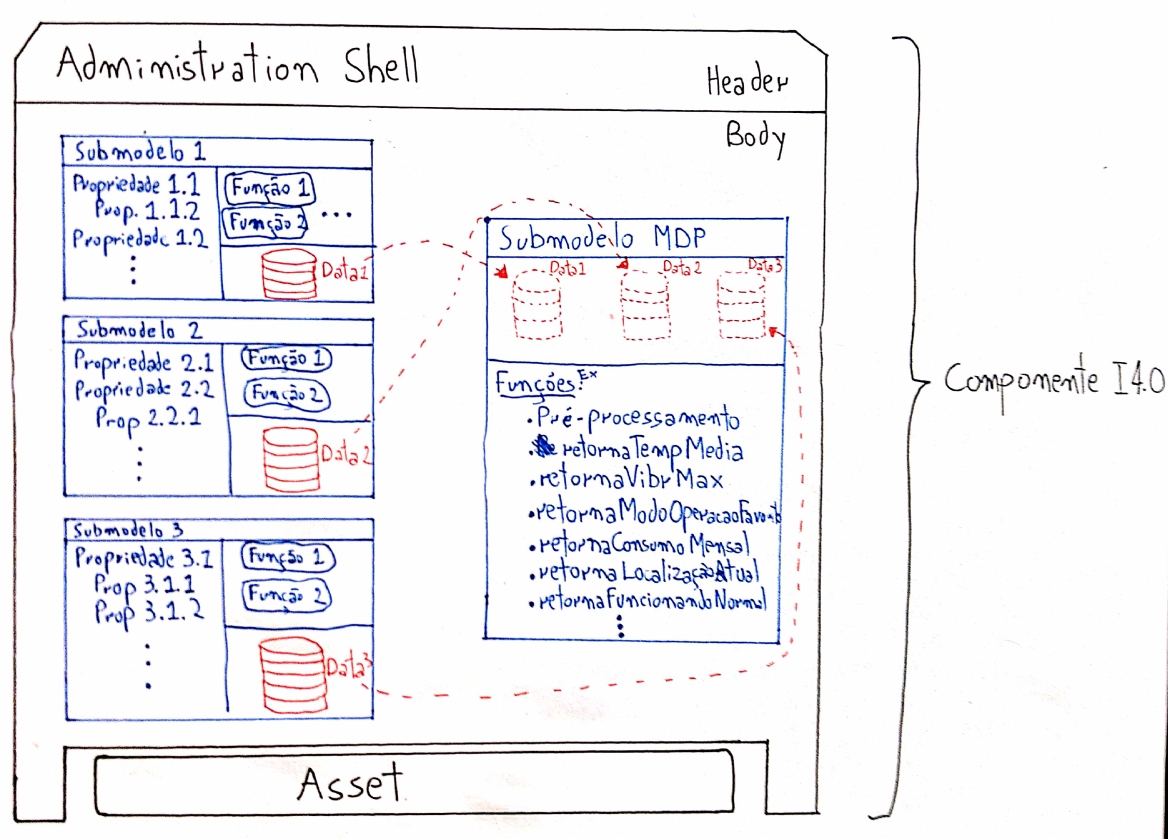 Administration Shell
Header
Body
Submodelo 1
Propriedade 1.1
Prop. 1.1.2
Propriedade 1.2
Função 1
Função 2
...
Data1
Submodelo 2
Propriedade 2.1
Propriedade 2.2
Prop 2.2.1
Função 1
Função 2
Data2
Submodelo 3
Propriedade 3.1
Prop 3.1.1
Prop 3.1.2
Função 1
Função 2
Data3
Submodelo MDP
Data1
Data2
Data3
Funções: Ex
.Pré-processamento
.retornaTempMedia
.retornaVibrMax
.retornaModoOperacaoFavorito
.retornaConsumoMensal
.retornaLocalizaçãoAtual
.retornaFuncionandoNormal
Asset
Componente I4.0